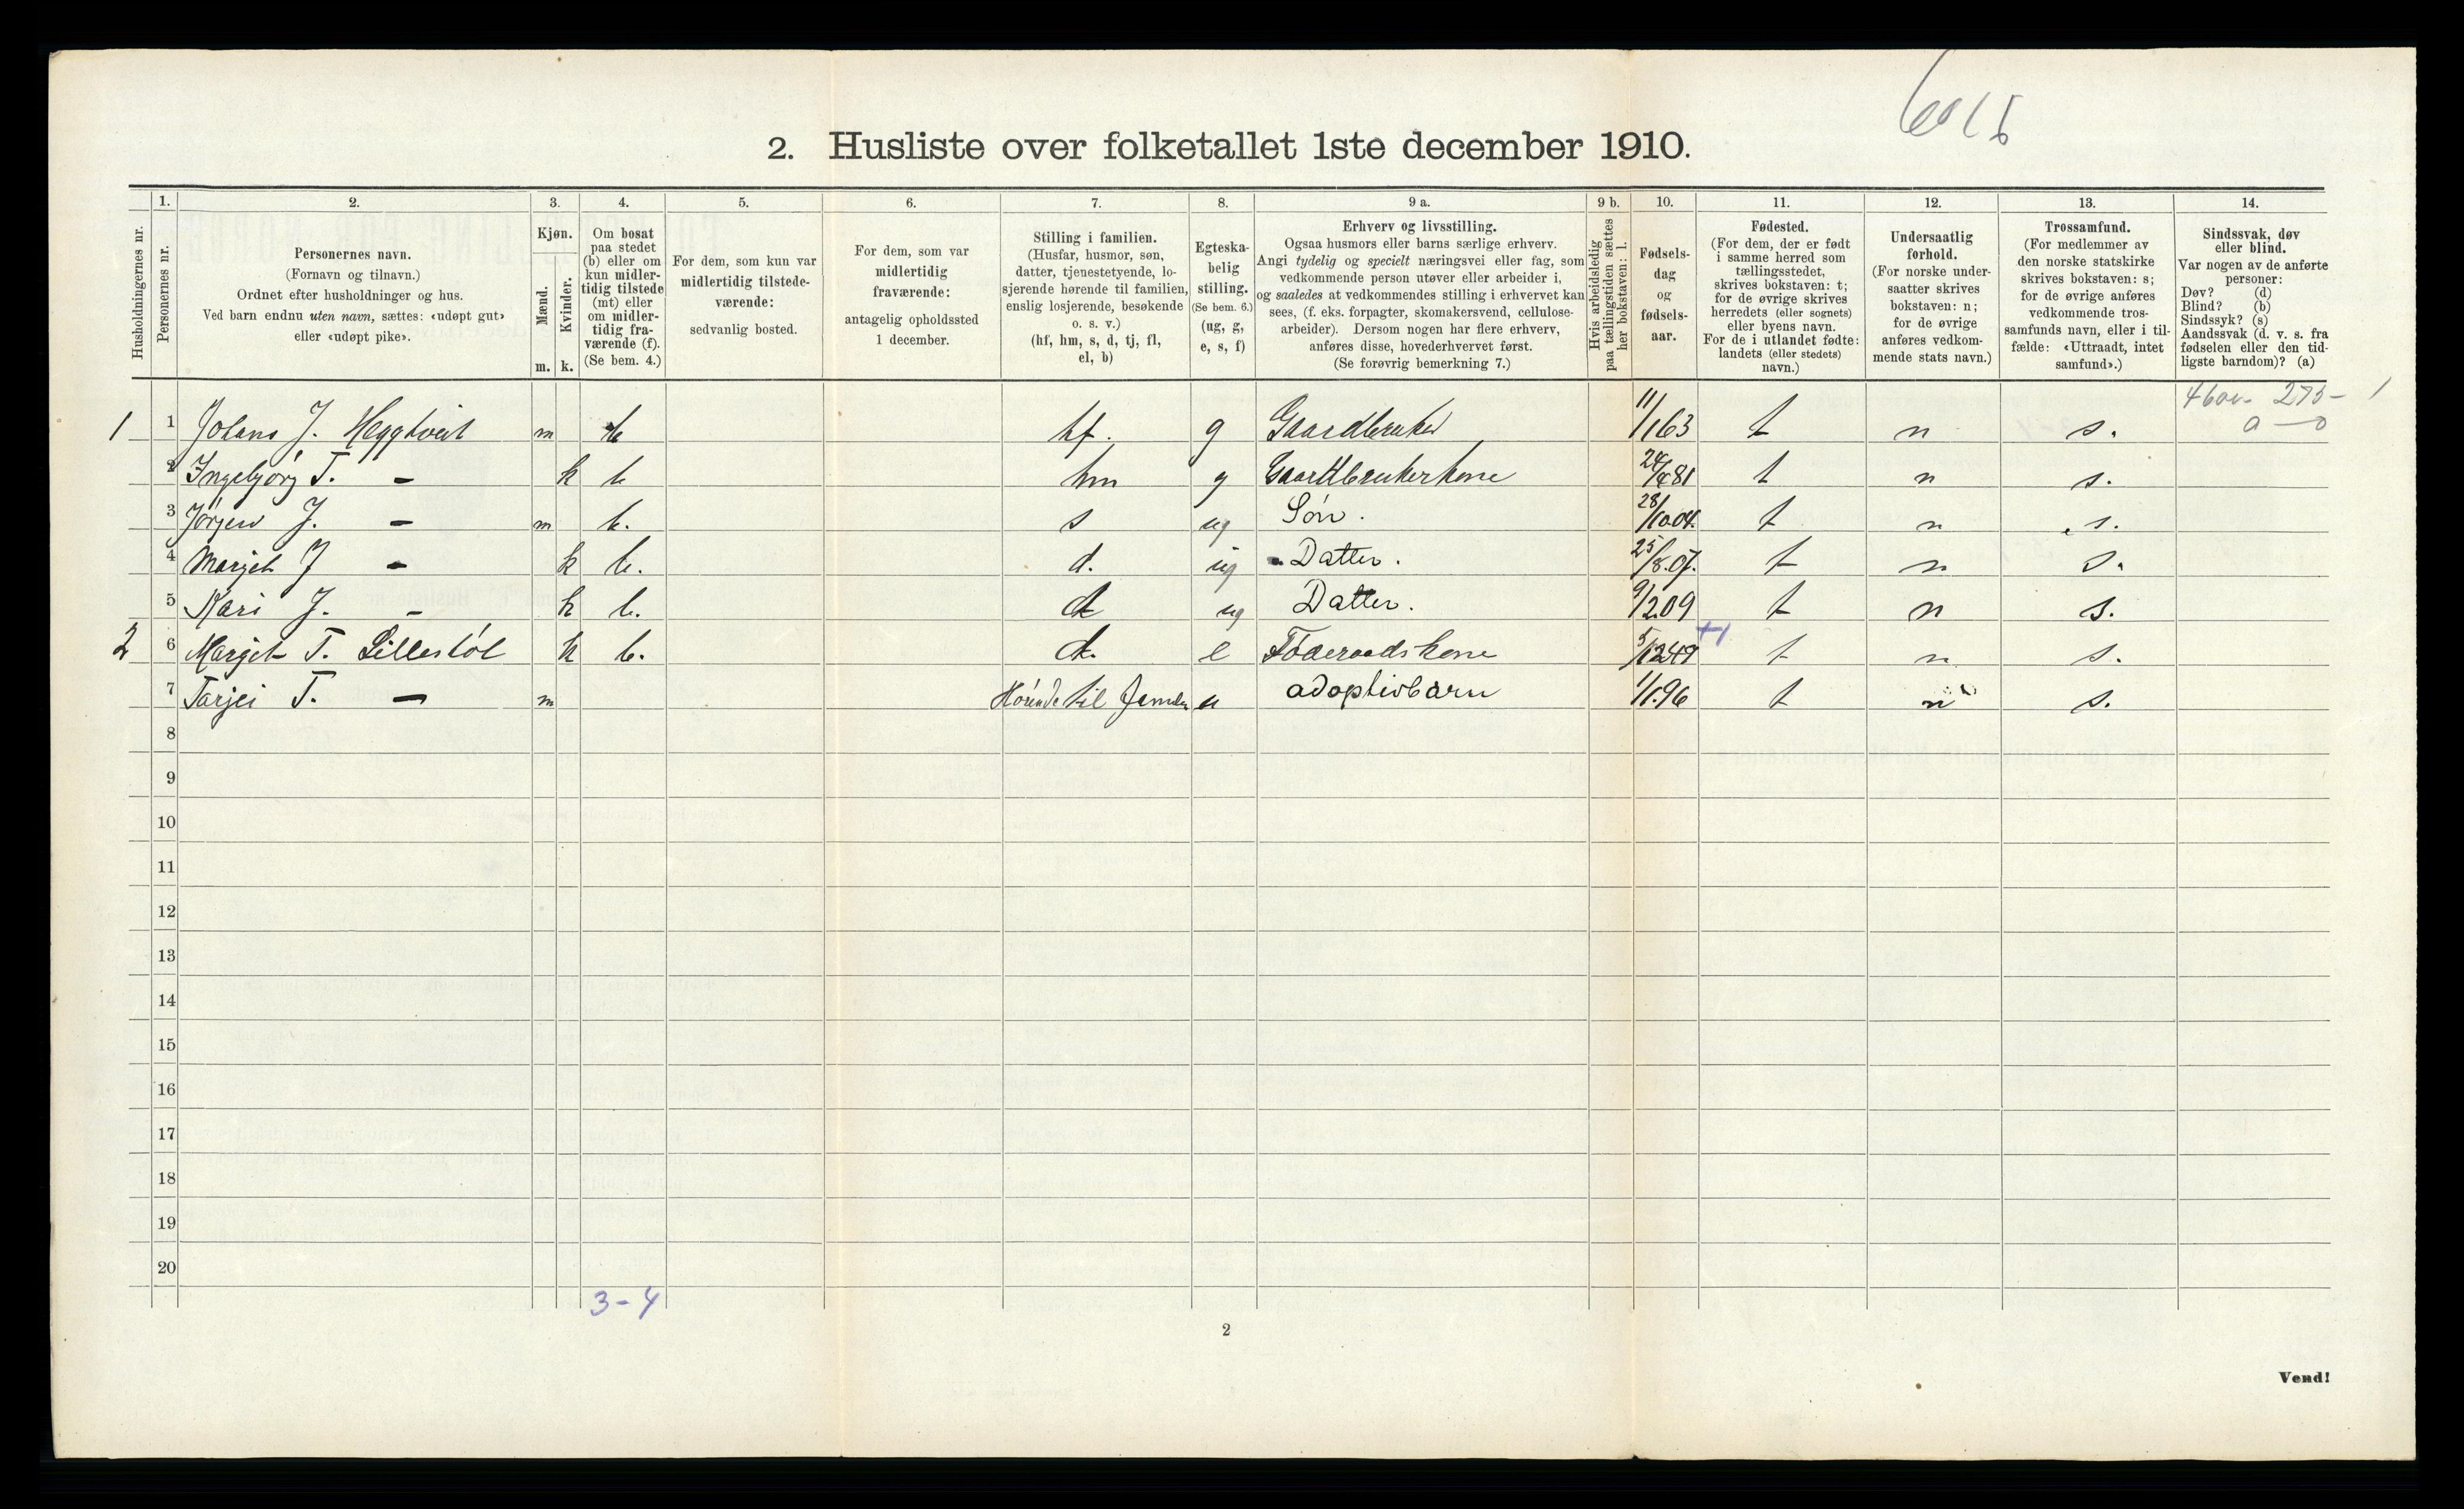 6016
2. Husliste over folketallet 1ste december 1910.
1. 2. 3. 4. 5. 6. 7. 8. 9 a. 9 b. 10. 11. 12. 13. 14.
Husholdningernes nr.
Personernes nr.
Personernes navn.
(Fornavn og tilnavn.)
Ordnet efter husholdninger og hus.
Ved barn endnu uten navn, sættes: «udøpt gut»
eller «udøpt pike».
Kjøn.
Mænd.
Kvinder.
m. k.
Om bosat
paa stedet
(b) eller om
kun midler-
tidig tilstede
(mt) eller
om midler-
tidig fra-
værende (f).
(Se bem. 4.)
For dem, som kun var
midlertidig tilstede-
værende:
sedvanlig bosted.
For dem, som var
midlertidig
fraværende:
antagelig opholdssted
1 december.
Stilling i familien.
(Husfar, husmor, søn,
datter, tjenestetyende, lo-
sjerende hørende til familien,
enslig losjerende, besøkende
o. s. v.)
(hf, hm, s, d, tj, fl,
el, b)
Egteska-
belig
stilling.
(Se bem. 6.)
(ug, g,
e, s, f)
Erhverv og livsstilling.
Ogsaa husmors eller barns særlige erhverv.
Angi tydelig og specielt næringsvei eller fag, som
vedkommende person utøver eller arbeider i,
og saaledes at vedkommendes stilling i erhvervet kan
sees, (f. eks. forpagter, skomakersvend, cellulose-
arbeider). Dersom nogen har flere erhverv,
anføres disse, hovederhvervet først.
(Se forøvrig bemerkning 7.)
Hvis arbeidsledig
paa tællingstiden sættes
her bokstaven: l.
Fødsels-
dag
og
fødsels-
aar.
Fødested.
(For dem, der er født
i samme herred som
tællingsstedet,
skrives bokstaven: t;
for de øvrige skrives
herredets (eller sognets)
eller byens navn.
For de i utlandet fødte:
landets (eller stedets)
navn.)
Undersaatlig
forhold.
(For norske under-
saatter skrives
bokstaven: n;
for de øvrige
anføres vedkom-
mende stats navn.)
Trossamfund.
(For medlemmer av
den norske statskirke
skrives bokstaven: s;
for de øvrige anføres
vedkommende tros-
samfunds navn, eller i til-
fælde: «Uttraadt, intet
samfund».)
Sindssvak, døv
eller blind.
Var nogen av de anførte
personer:
Døv? (d)
Blind? (b)
Sindssyk? (s)
Aandssvak (d. v. s. fra
fødselen eller den tid-
ligste barndom)? (a)
275 - 1
1 1 J. Heggtveit m b hf. g Gaardbruker 11/1 63 t n s. a — o
2 Ingebjørg T. — k b hm g Gaardbrukerkone 24/4 81 t n s.
3 Jørgen J. — m b. s ug Søn. 28/10 04. t n s.
4 Margit J — k b. d. ug Datter. 25/8. 07. t n s.
5 Kari J. — k b. d ug Datter. 9/2 09 t n s.
2 6 Margit T. Lillestøl k b. d. e Føderaadskone 5/12 49 +1 t n s.
7 Tarjei T. — m til u adoptivbarn 1/1. 96 t n s.
8
9
10
11
12
13
14
15
16
17
18
19
20
3 - 4
2
Vend!